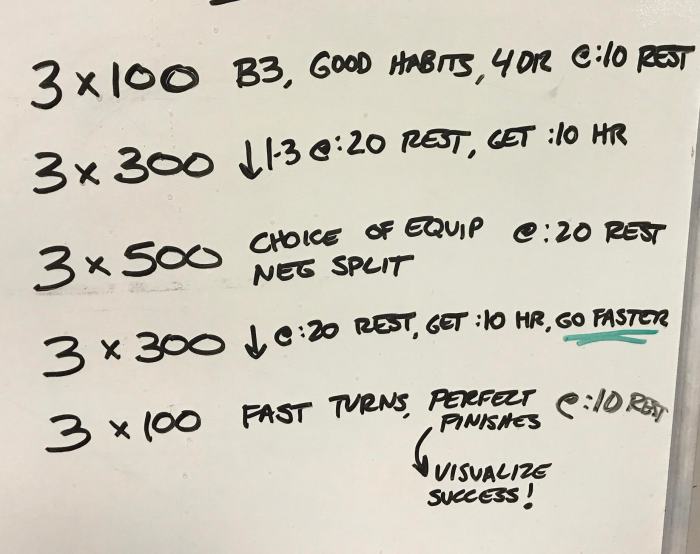 3 x 100 B3, GOOD HABITS, 4 DK @ :10 REST
3 x 300 ↓1-3 @ :20 REST, GET :10 HR
3 x 500 CHOICE OF EQUIP @ :20 REST
NEG SPLIT
3 x 300 ↓ @ :20 REST, GET :10 HR, GO FASTER
3 x 100 FAST TURNS, PERFECT @ :10 REST
FINISHES
VISUALIZE
SUCCESS!